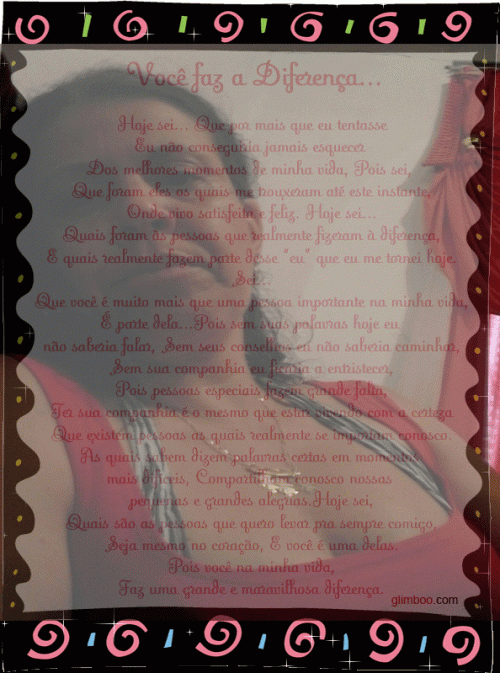 Você faz a Diferença...
Hoje sei... Que por mais que eu tentasse
Eu não conseguiria jamais esquecer
Dos melhores momentos de minha vida, Pois sei,
Que foram eles os quais me trouxeram até este instante,
Onde vivo satisfeita e feliz. Hoje sei...
Quais foram as pessoas que realmente fizeram à diferença,
E quais realmente fazem parte desse "eu" que eu me tornei hoje.
Sei...
Que você é muito mais que uma pessoa importante na minha vida,
É parte dela...Pois sem suas palavras hoje eu
não saberia falar, Sem seus conselhos eu não saberia caminhar,
Sem sua companhia eu ficaria a entristecer,
Pois pessoas especiais fazem grande falta,
Ter sua companhia é o mesmo que estar vivendo com a certeza
Que existem pessoas as quais realmente se importam conosco.
As quais sabem dizem palavras certas em momentos
mais difíceis, Compartilham conosco nossas
pequenas e grandes alegrias.Hoje sei,
Quais são as pessoas que quero levar pra sempre comigo,
Seja mesmo no coração, E você é uma delas.
Pois você na minha vida,
Faz uma grande e maravilhosa diferença.
glimboo.com